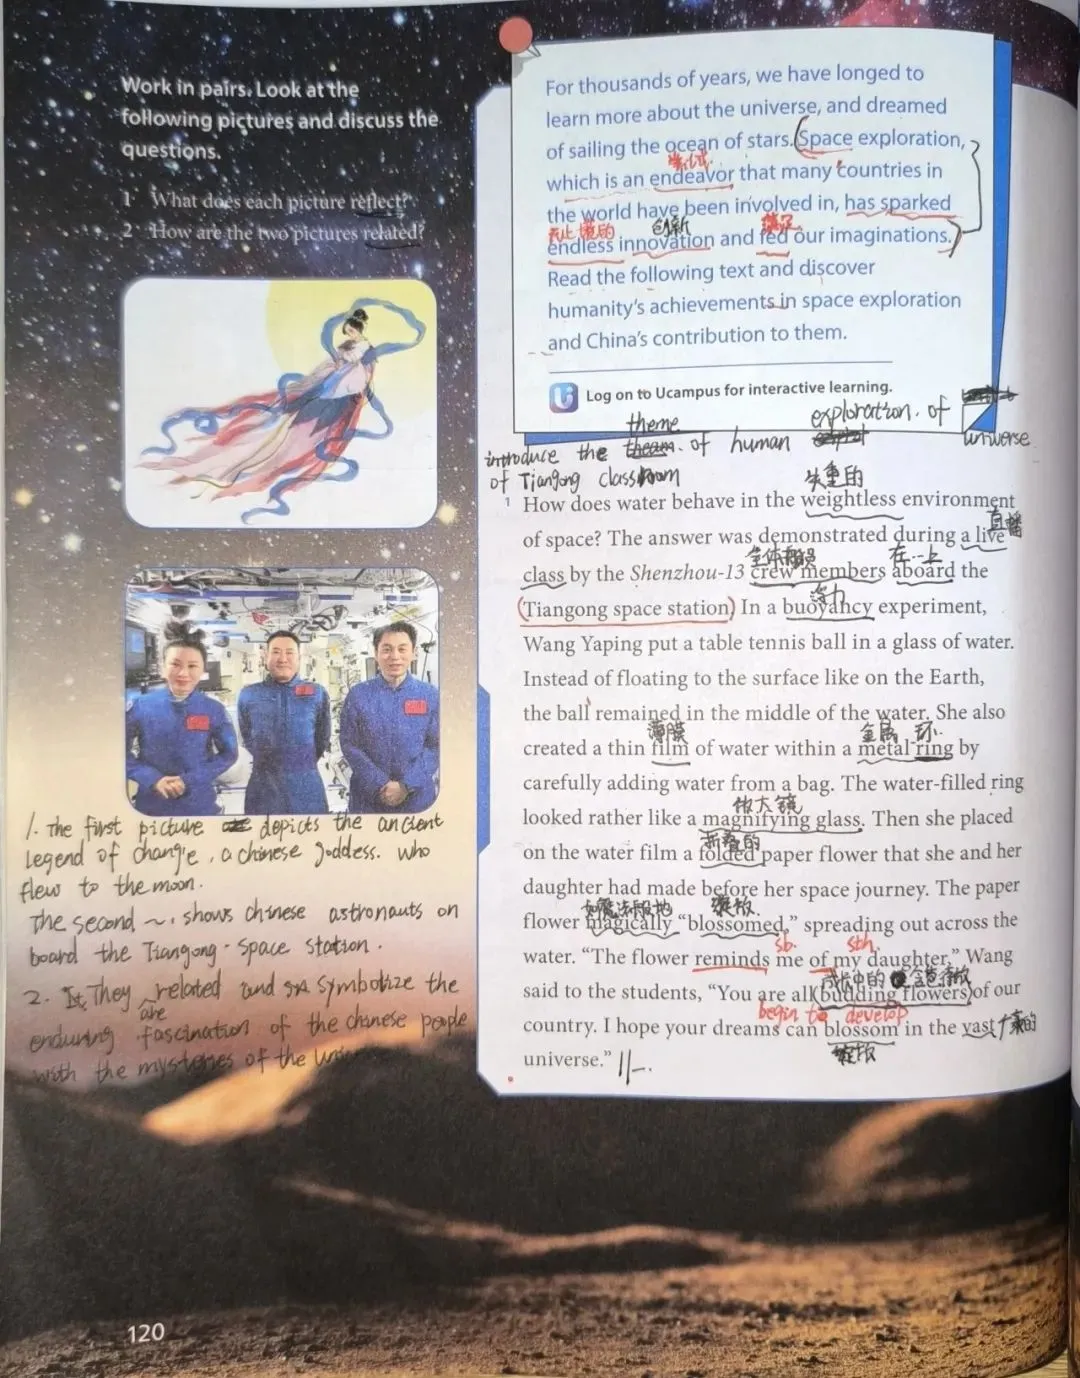 Work in pairs. Look at the
following pictures and discuss the
questions.
1 What does each picture reflect?
2 How are the two pictures related?
1. The first picture depicts the ancient
legend of chang'e, a chinese goddess. who
flew to the moon.
The second ~, shows chinese astronauts on
board the Tiangong space station.
2. They are related and symbolize the
enduring fascination of the chinese people
with the mysteries of the
120
For thousands of years, we have longed to
learn more about the universe, and dreamed
of sailing the ocean of stars. Space exploration,
尝试
which is an endeavor that many countries in
the world have been involved in, has sparked
无止境的 创新 满足
endless innovation and fed our imaginations.
Read the following text and discover
humanity's achievements in space exploration
and China's contribution to them.
U Log on to Ucampus for interactive learning.
theme exploration. of
introduce the of human universe
of Tiangong classroom 失重的
1 How does water behave in the weightless environment
直播
of space? The answer was demonstrated during a live
全体 在…上
class by the Shenzhou-13 crew members aboard the
浮力
(Tiangong space station) In a buoyancy experiment,
Wang Yaping put a table tennis ball in a glass of water.
Instead of floating to the surface like on the Earth,
the ball remained in the middle of the water. She also
薄膜 金属 环
created a thin film of water within a metal ring by
carefully adding water from a bag. The water-filled ring
放大镜
looked rather like a magnifying glass. Then she placed
折叠的
on the water film a folded paper flower that she and her
daughter had made before her space journey. The paper
如魔法般地 绽放
flower magically "blossomed," spreading out across the
sb. sth.
water. "The flower reminds me of my daughter," Wang
成长中的
said to the students, "You are all (budding flowers) of our
begin to develop
country. I hope your dreams can blossom in the vast
绽放
universe."